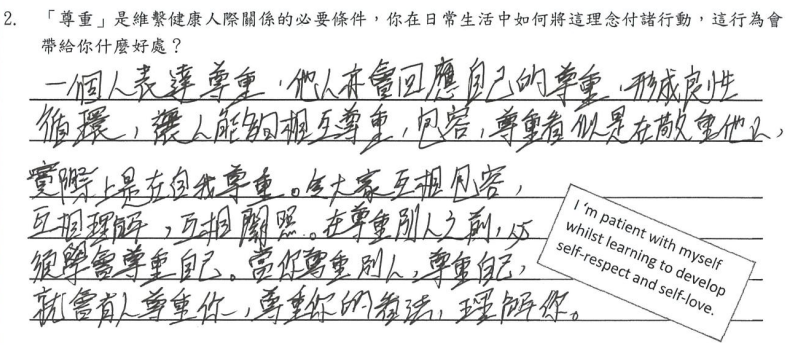 2. 「尊重」是維繫健康人際關係的必要條件，你在日常生活中如何將這理念付諸行動，這行為會
帶給你什麼好處？
一個人表達尊重，他人亦會回應自己的尊重，形成良性
循環，讓人能夠相互尊重，包容，尊重看似是在敬重他人，
實際上是在自我尊重。令大家互相包容，
互相理解，互相關照。在尊重別人之前，必
須學會尊重自己。當你尊重別人，尊重自己，
就會有人尊重你，尊重你的看法，理解你。
I 'm patient with myself
whilst learning to develop
self-respect and self-love.